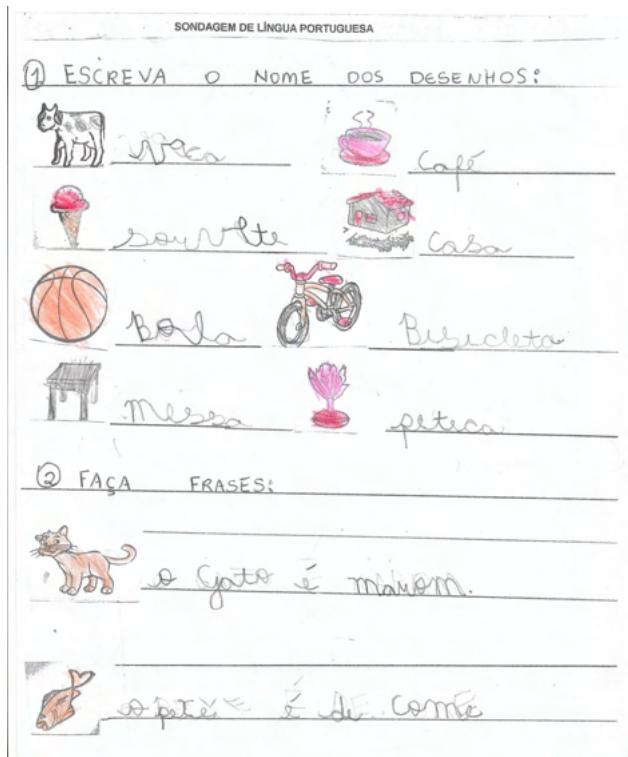 SONDAGEM DE LÍNGUA PORTUGUESA
1 ESCREVA O NOME DOS DESENHOS:
Vaca Café
sorvete Casa
Bola Bisicleta
messa peteca
2 FAÇA FRASES:
o Gato é marrom.
o pexe é de come